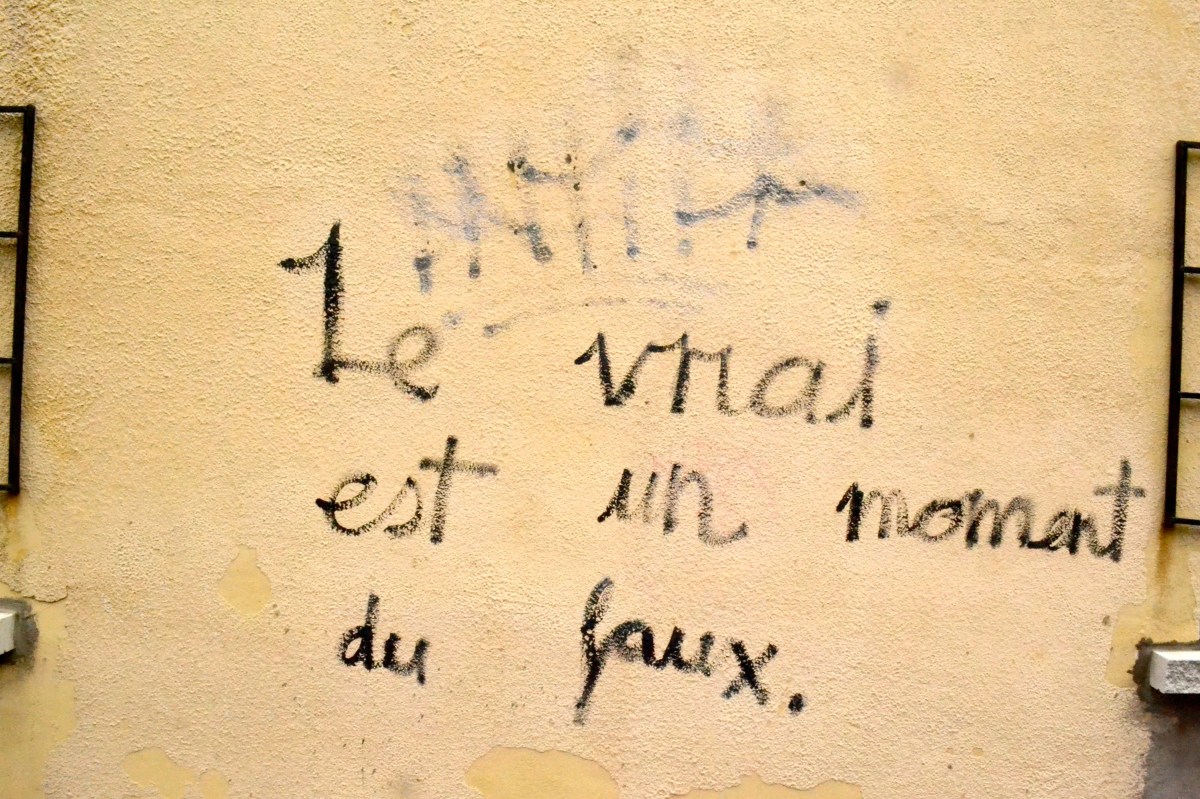 Le vrai
est un moment
du faux.